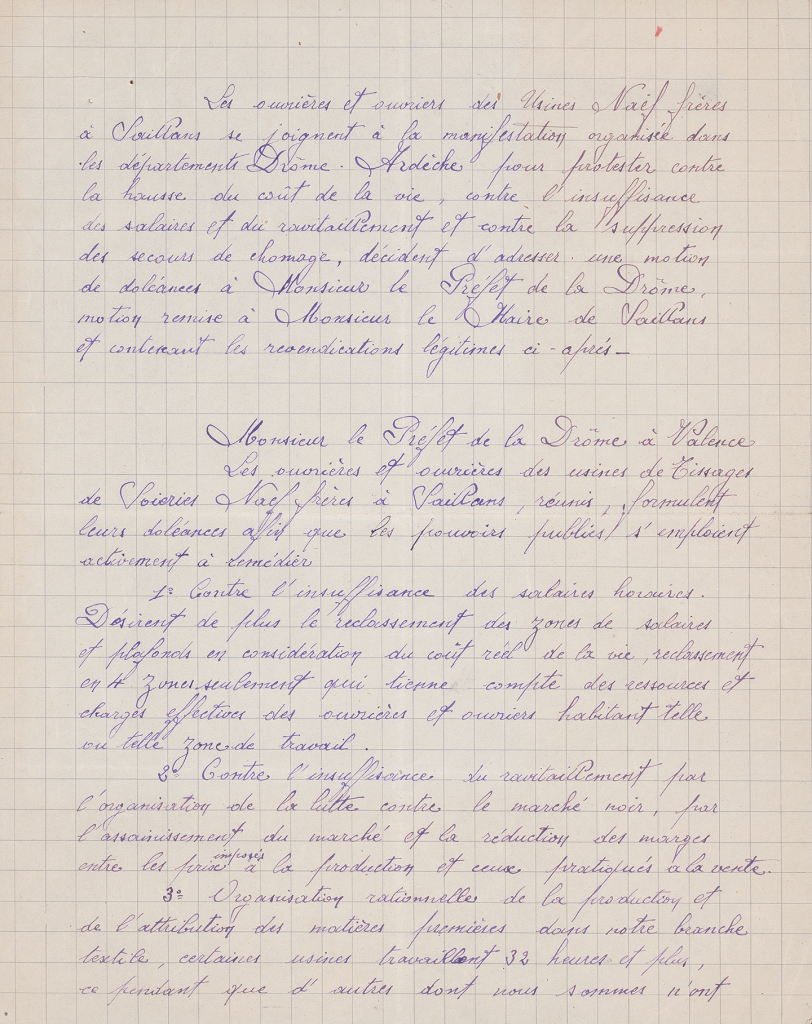 Les ouvrières et ouvriers des Usines Naëf frères
à Saillans se joignent à la manifestation organisée dans
les départements Drôme - Ardèche pour protester contre
la hausse du coût de la vie, contre l'insuffisance
des salaires et du ravitaillement et contre la suppression
des secours de chomage, décident d'adresser une motion
de doléances à Monsieur le Préfet de la Drôme,
motion remise à Monsieur le Maire de Saillans
et contenant les revendications légitimes ci-après_
Monsieur le Préfet de la Drôme à Valence
Les ouvrières et ouvrières des usines de Tissages
de Soieries Naëf frères à Saillans, réunis, formulent
leurs doléances afin que les pouvoirs publics s'emploient
activement à remédier
1º Contre l'insuffisance des salaires horaires.
Désirent de plus le reclassement des zones de salaires
et plafonds en considération du coût réel de la vie, reclassement
en 4 zones seulement qui tienne compte des ressources et
charges effectives des ouvrières et ouvriers habitant telle
ou telle zone de travail.
2º Contre l'insuffisance du ravitaillement par
l'organisation de la lutte contre le marché noir, par
l'assainissement du marché et la réduction des marges
entre les prix imposés à la production et ceux pratiqués à la vente.
3º Organisation rationnelle de la production et
de l'attribution des matières premières dans notre branche
textile, certaines usines travaillent 32 heures et plus,
ce pendant que d'autres dont nous sommes n'ont